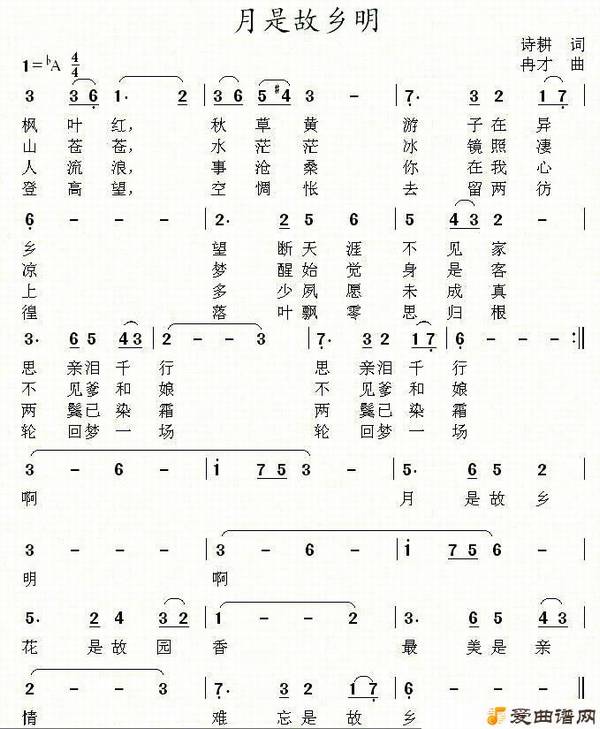 月是故乡明
诗耕 词
1=♭A 4/4 冉才 曲
3 3 6 1· 2 | 3 6 5 #4 3 - | 7· 3 2 1 7 |
枫叶红, 秋草黄 游子在异
山苍苍, 水茫茫 冰镜照凄
人流浪, 事沧桑 你在我心
登高望, 空惆怅 去留两彷
6 - - - | 2· 2 5 6 | 5 4 3 2 1 |
乡 望断天涯 不见家
凉 梦醒始觉 身是客
上 多少夙愿 未成真
徨 落叶飘零 思归根
3· 6 5 4 3 | 2 - - 3 | 7· 3 2 1 7 | 6 - - - :||
思亲泪千行 思亲泪千行
不见爹和娘 不见爹和娘
两鬓已染霜 两鬓已染霜
轮回梦一场 轮回梦一场
3 - 6 - | 1 7 5 3 | 5· 6 5 2 |
啊 月是故乡
3 - - - | 3 - 6 - | 1 7 5 6 |
明 啊
5· 2 4 3 2 | 1 - - 2 | 3· 6 5 4 3 |
花是故园香 最美是亲
2 - 3 - | 7· 3 2 1 7 | 6 - - - ||
情 难忘是故乡
爱曲谱网